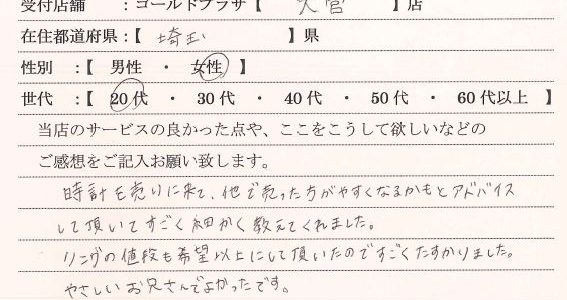 受付店舗 :ゴールドプラザ【 大宮 】店
在住都道府県:【 埼玉 】県
性別 :【 男性 ・ 女性 】
世代 :【 20代 ・ 30代 ・ 40代 ・ 50代 ・ 60代以上 】
当店のサービスの良かった点や、ここをこうして欲しいなどの
ご感想をご記入お願い致します。
時計を売りに来て、他で売った方がやすくなるかもとアドバイス
して頂いてすごく細かく教えてくれました。
リングの値段も希望以上にして頂いたのですごくたすかりました。
やさしいお兄さんでよかったです。